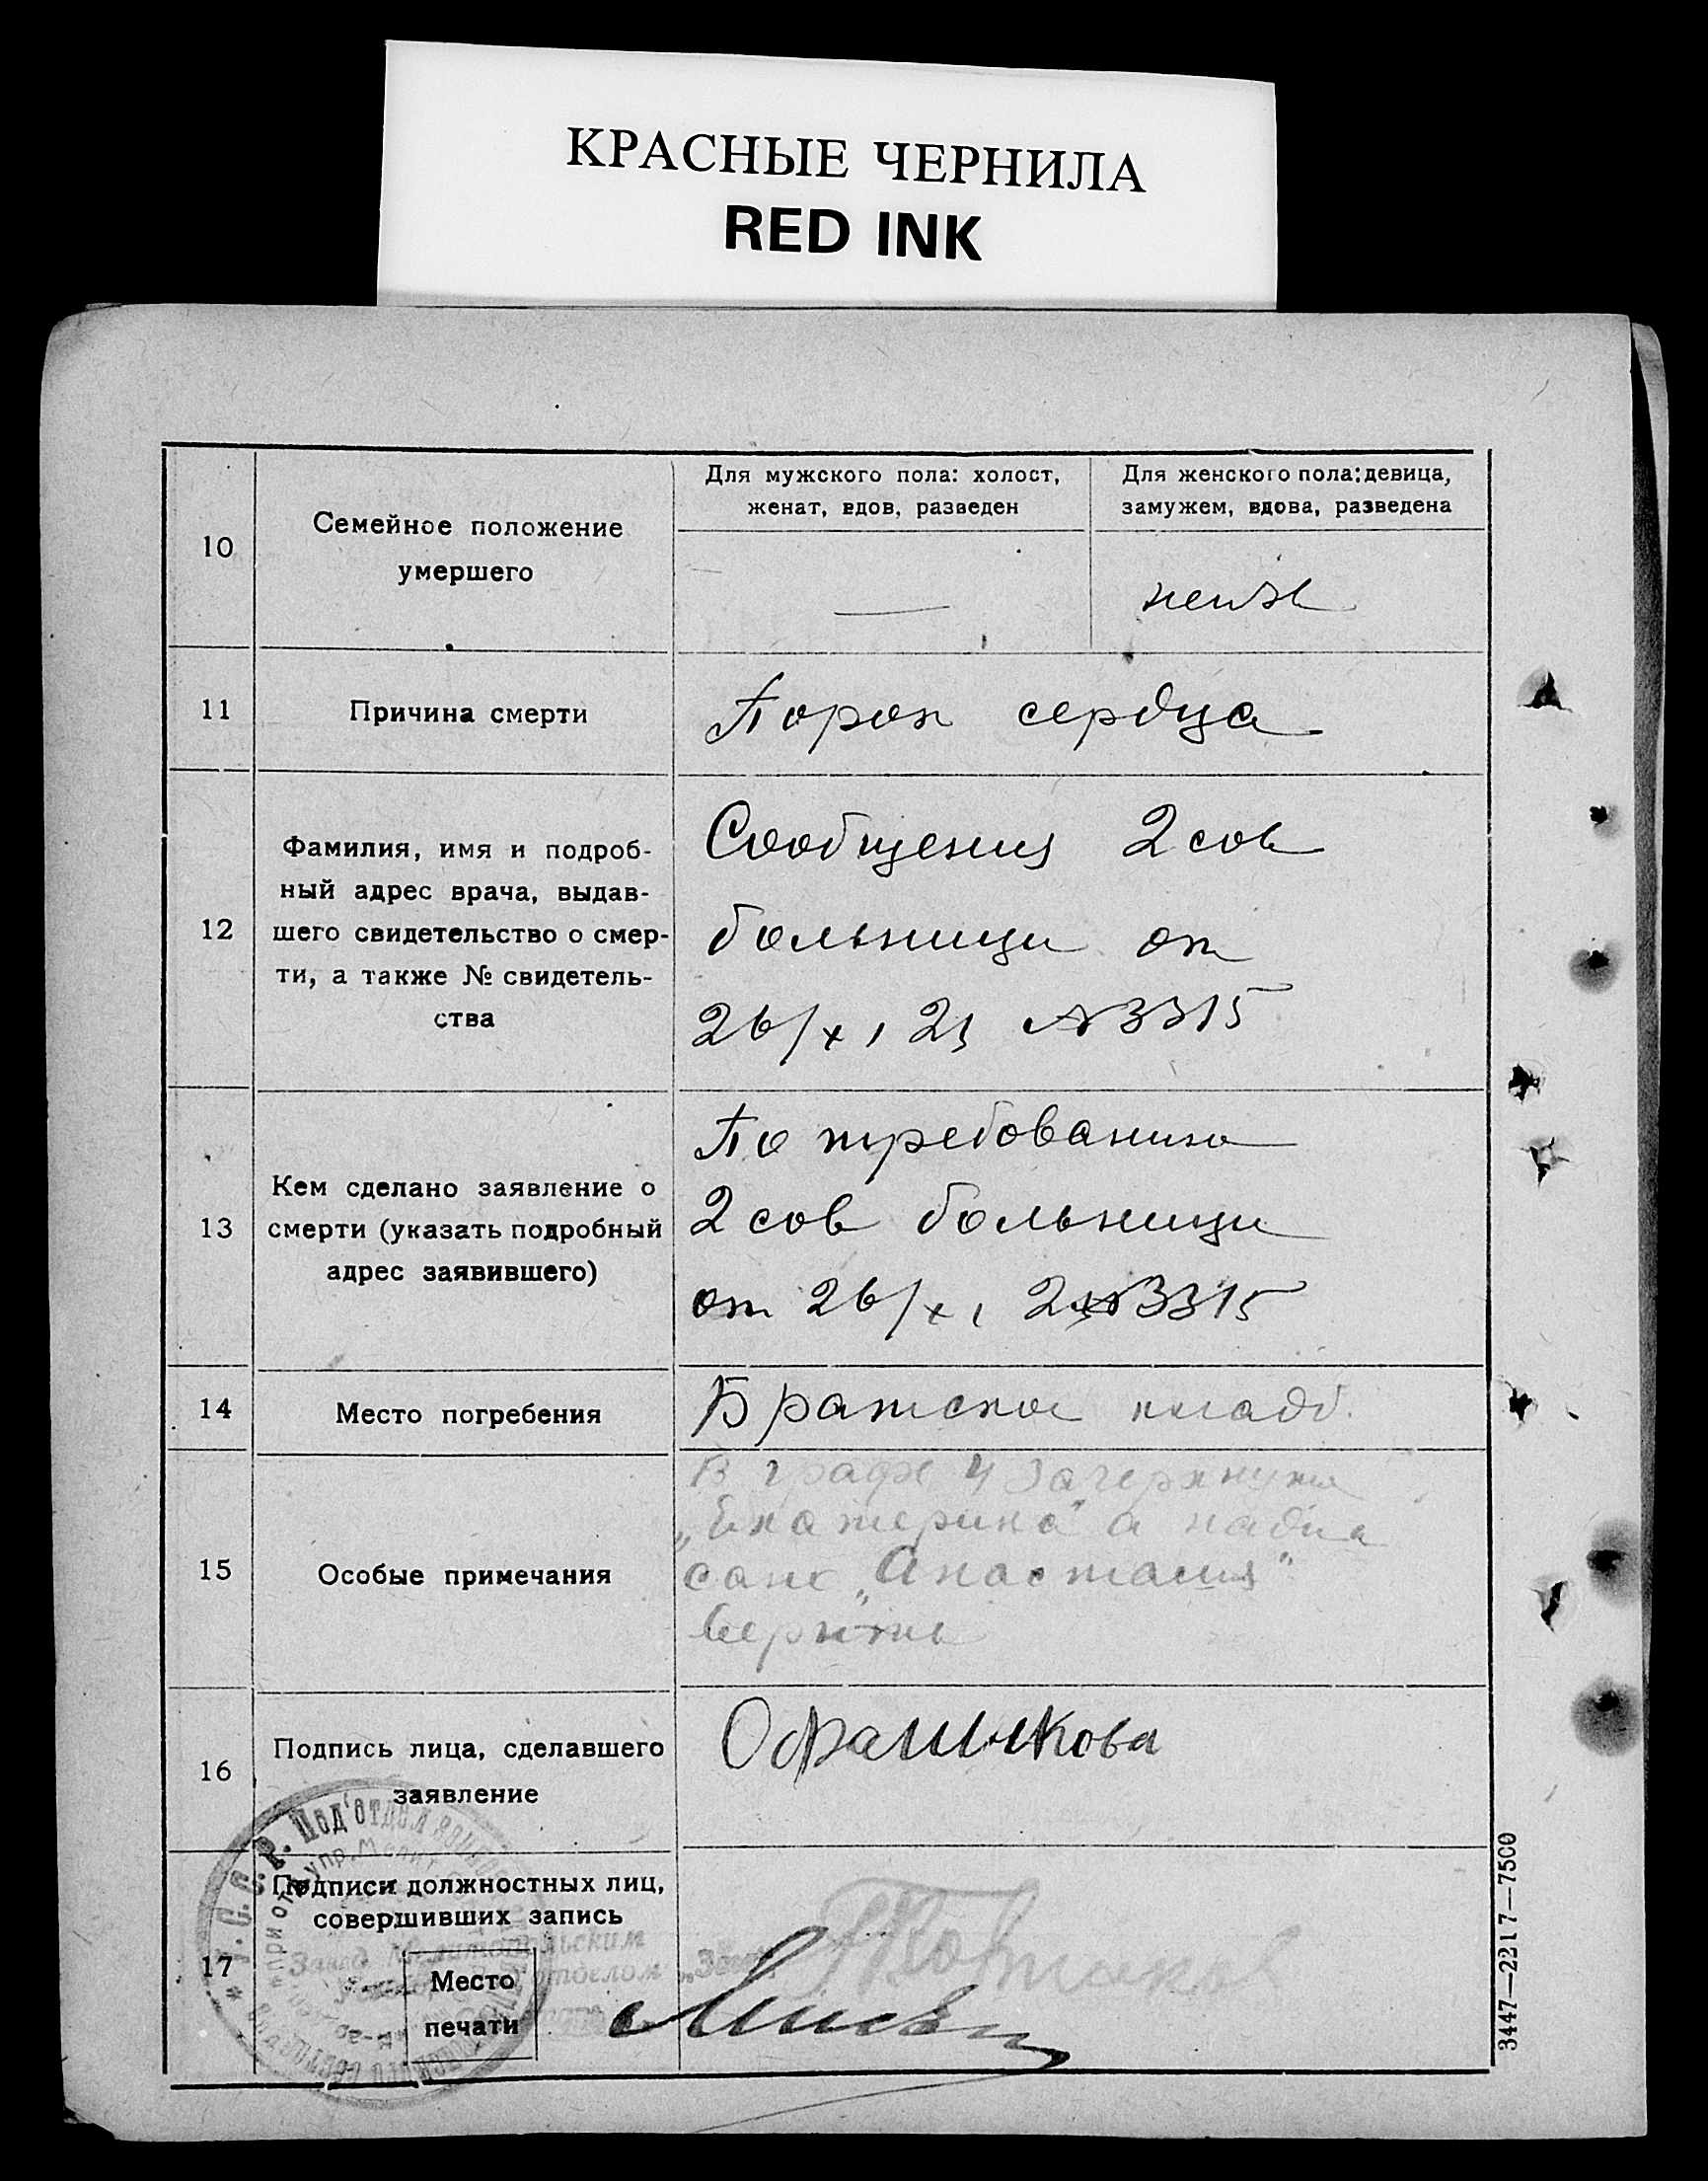 КРАСНЫЕ ЧЕРНИЛА
RED INK
10
Семейное положение
умершего
Для мужского пола: холост,
женат, вдов, разведен
Для женского пола: девица,
замужем, вдова, разведена
—
неизв
11
Причина смерти
Порок сердца
12
Фамилия, имя и подроб-
ный адрес врача, выдав-
шего свидетельство о смер-
ти, а также № свидетель-
ства
Сообщения 2 сов
больници от
26/XI 23 №3315
13
Кем сделано заявление о
смерти (указать подробный
адрес заявившего)
По требованию
2 сов больници
от 26/XI 23 №3315
14
Место погребения
Братское кладб.
15
Особые примечания
В графе 4 зачеркнуто
„Екатерина" а надпи
сано „Анастасия"
верить
16
Подпись лица, сделавшего
заявление
17
Подписи должностных лиц,
совершивших запись
Место
печати
С. С. Р. Под'отдел
3447—2217—7500